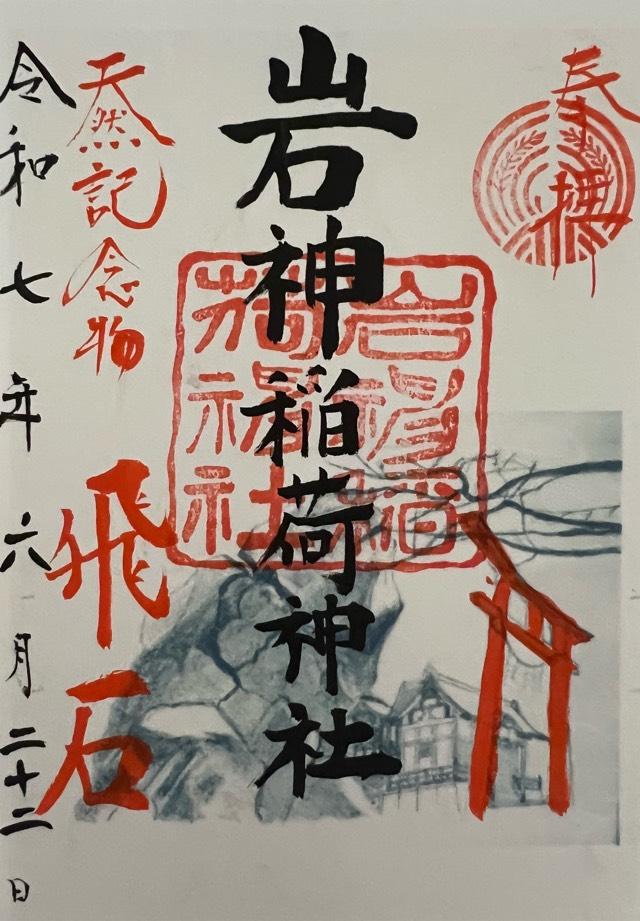 奉拝
岩神稲荷神社
天然記念物
飛石
令和七年六月二十二日